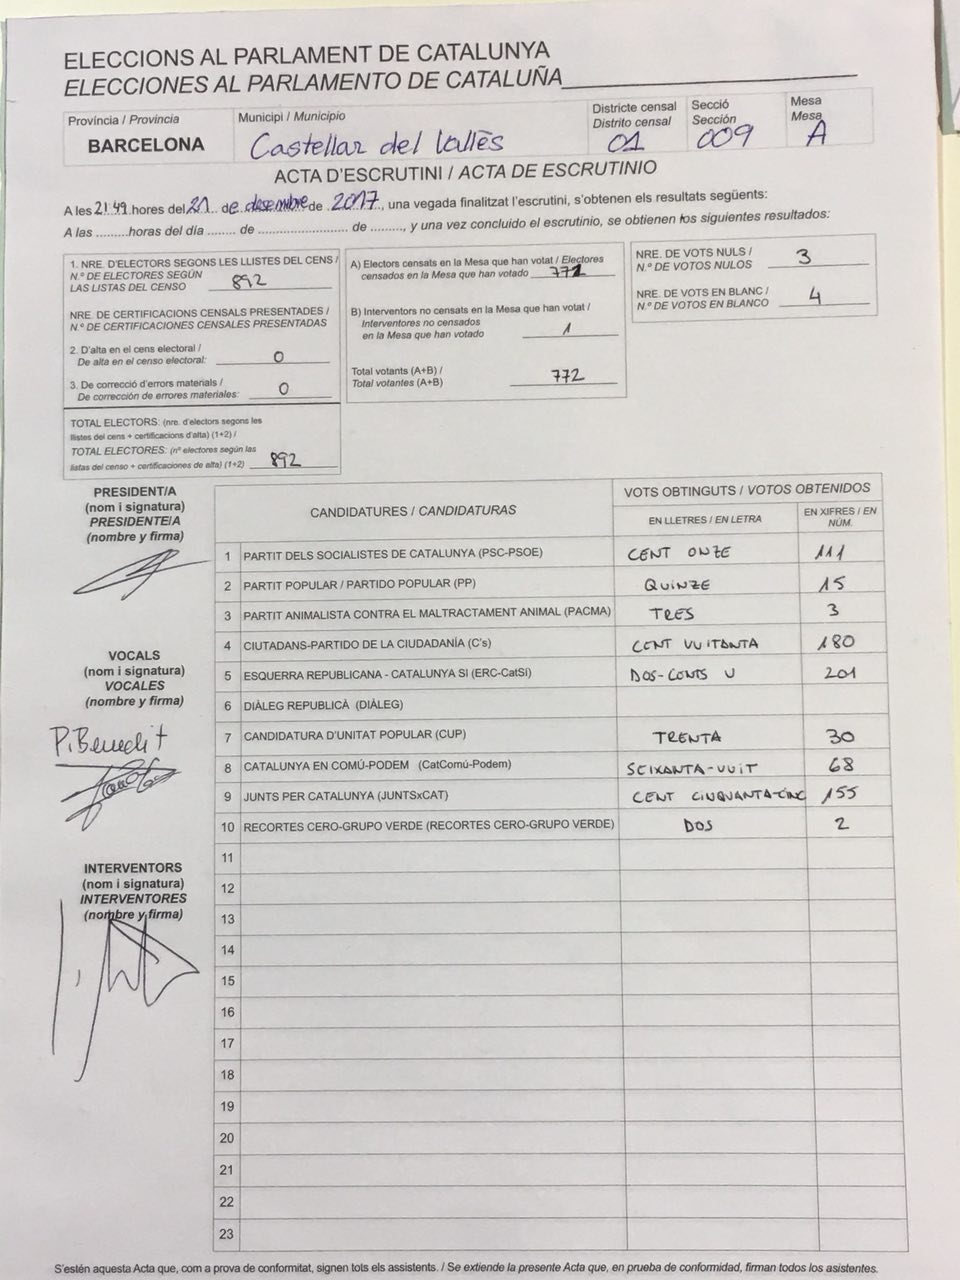 ELECCIONS AL PARLAMENT DE CATALUNYA
ELECCIONES AL PARLAMENTO DE CATALUÑA
Província / Provincia
BARCELONA
Municipi / Municipio
Castellar del Vallès
Districte censal
Distrito censal
01
Secció
Sección
009
Mesa
Mesa
A
ACTA D'ESCRUTINI / ACTA DE ESCRUTINIO
A les 21:49 hores del 21 de desembre de 2017, una vegada finalitzat l'escrutini, s'obtenen els resultats següents:
A las .........horas del día ........ de .......................... de ........., y una vez concluido el escrutinio, se obtienen los siguientes resultados:
1. NRE. D'ELECTORS SEGONS LES LLISTES DEL CENS /
N.º DE ELECTORES SEGÚN
LAS LISTAS DEL CENSO 892
NRE. DE CERTIFICACIONS CENSALS PRESENTADES /
N.º DE CERTIFICACIONES CENSALES PRESENTADAS
2. D'alta en el cens electoral /
De alta en el censo electoral: 0
3. De correcció d'errors materials /
De corrección de errores materiales: 0
TOTAL ELECTORS: (nre. d'electors segons les
llistes del cens + certificacions d'alta) (1+2) /
TOTAL ELECTORES: (nº electores según las
listas del censo + certificaciones de alta) (1+2) 892
A) Electors censats en la Mesa que han votat / Electores
censados en la Mesa que han votado 771
B) Interventors no censats en la Mesa que han votat /
Interventores no censados
en la Mesa que han votado 1
Total votants (A+B) /
Total votantes (A+B) 772
NRE. DE VOTS NULS /
N.º DE VOTOS NULOS 3
NRE. DE VOTS EN BLANC /
N.º DE VOTOS EN BLANCO 4
PRESIDENT/A
(nom i signatura)
PRESIDENTE/A
(nombre y firma)
VOCALS
(nom i signatura)
VOCALES
(nombre y firma)
P. Benedit
INTERVENTORS
(nom i signatura)
INTERVENTORES
(nombre y firma)
CANDIDATURES / CANDIDATURAS
VOTS OBTINGUTS / VOTOS OBTENIDOS
EN LLETRES / EN LETRA
EN XIFRES / EN NÚM.
1 PARTIT DELS SOCIALISTES DE CATALUNYA (PSC-PSOE) CENT ONZE 111
2 PARTIT POPULAR / PARTIDO POPULAR (PP) QUINZE 15
3 PARTIT ANIMALISTA CONTRA EL MALTRACTAMENT ANIMAL (PACMA) TRES 3
4 CIUTADANS-PARTIDO DE LA CIUDADANÍA (C's) CENT VUITANTA 180
5 ESQUERRA REPUBLICANA - CATALUNYA SI (ERC-CatSí) DOS-CENTS U 201
6 DIÀLEG REPUBLICÀ (DIÀLEG)
7 CANDIDATURA D'UNITAT POPULAR (CUP) TRENTA 30
8 CATALUNYA EN COMÚ-PODEM (CatComú-Podem) SEIXANTA-VUIT 68
9 JUNTS PER CATALUNYA (JUNTSxCAT) CENT CINQUANTA-CINC 155
10 RECORTES CERO-GRUPO VERDE (RECORTES CERO-GRUPO VERDE) DOS 2
11
12
13
14
15
16
17
18
19
20
21
22
23
S'estén aquesta Acta que, com a prova de conformitat, signen tots els assistents. / Se extiende la presente Acta que, en prueba de conformidad, firman todos los asistentes.